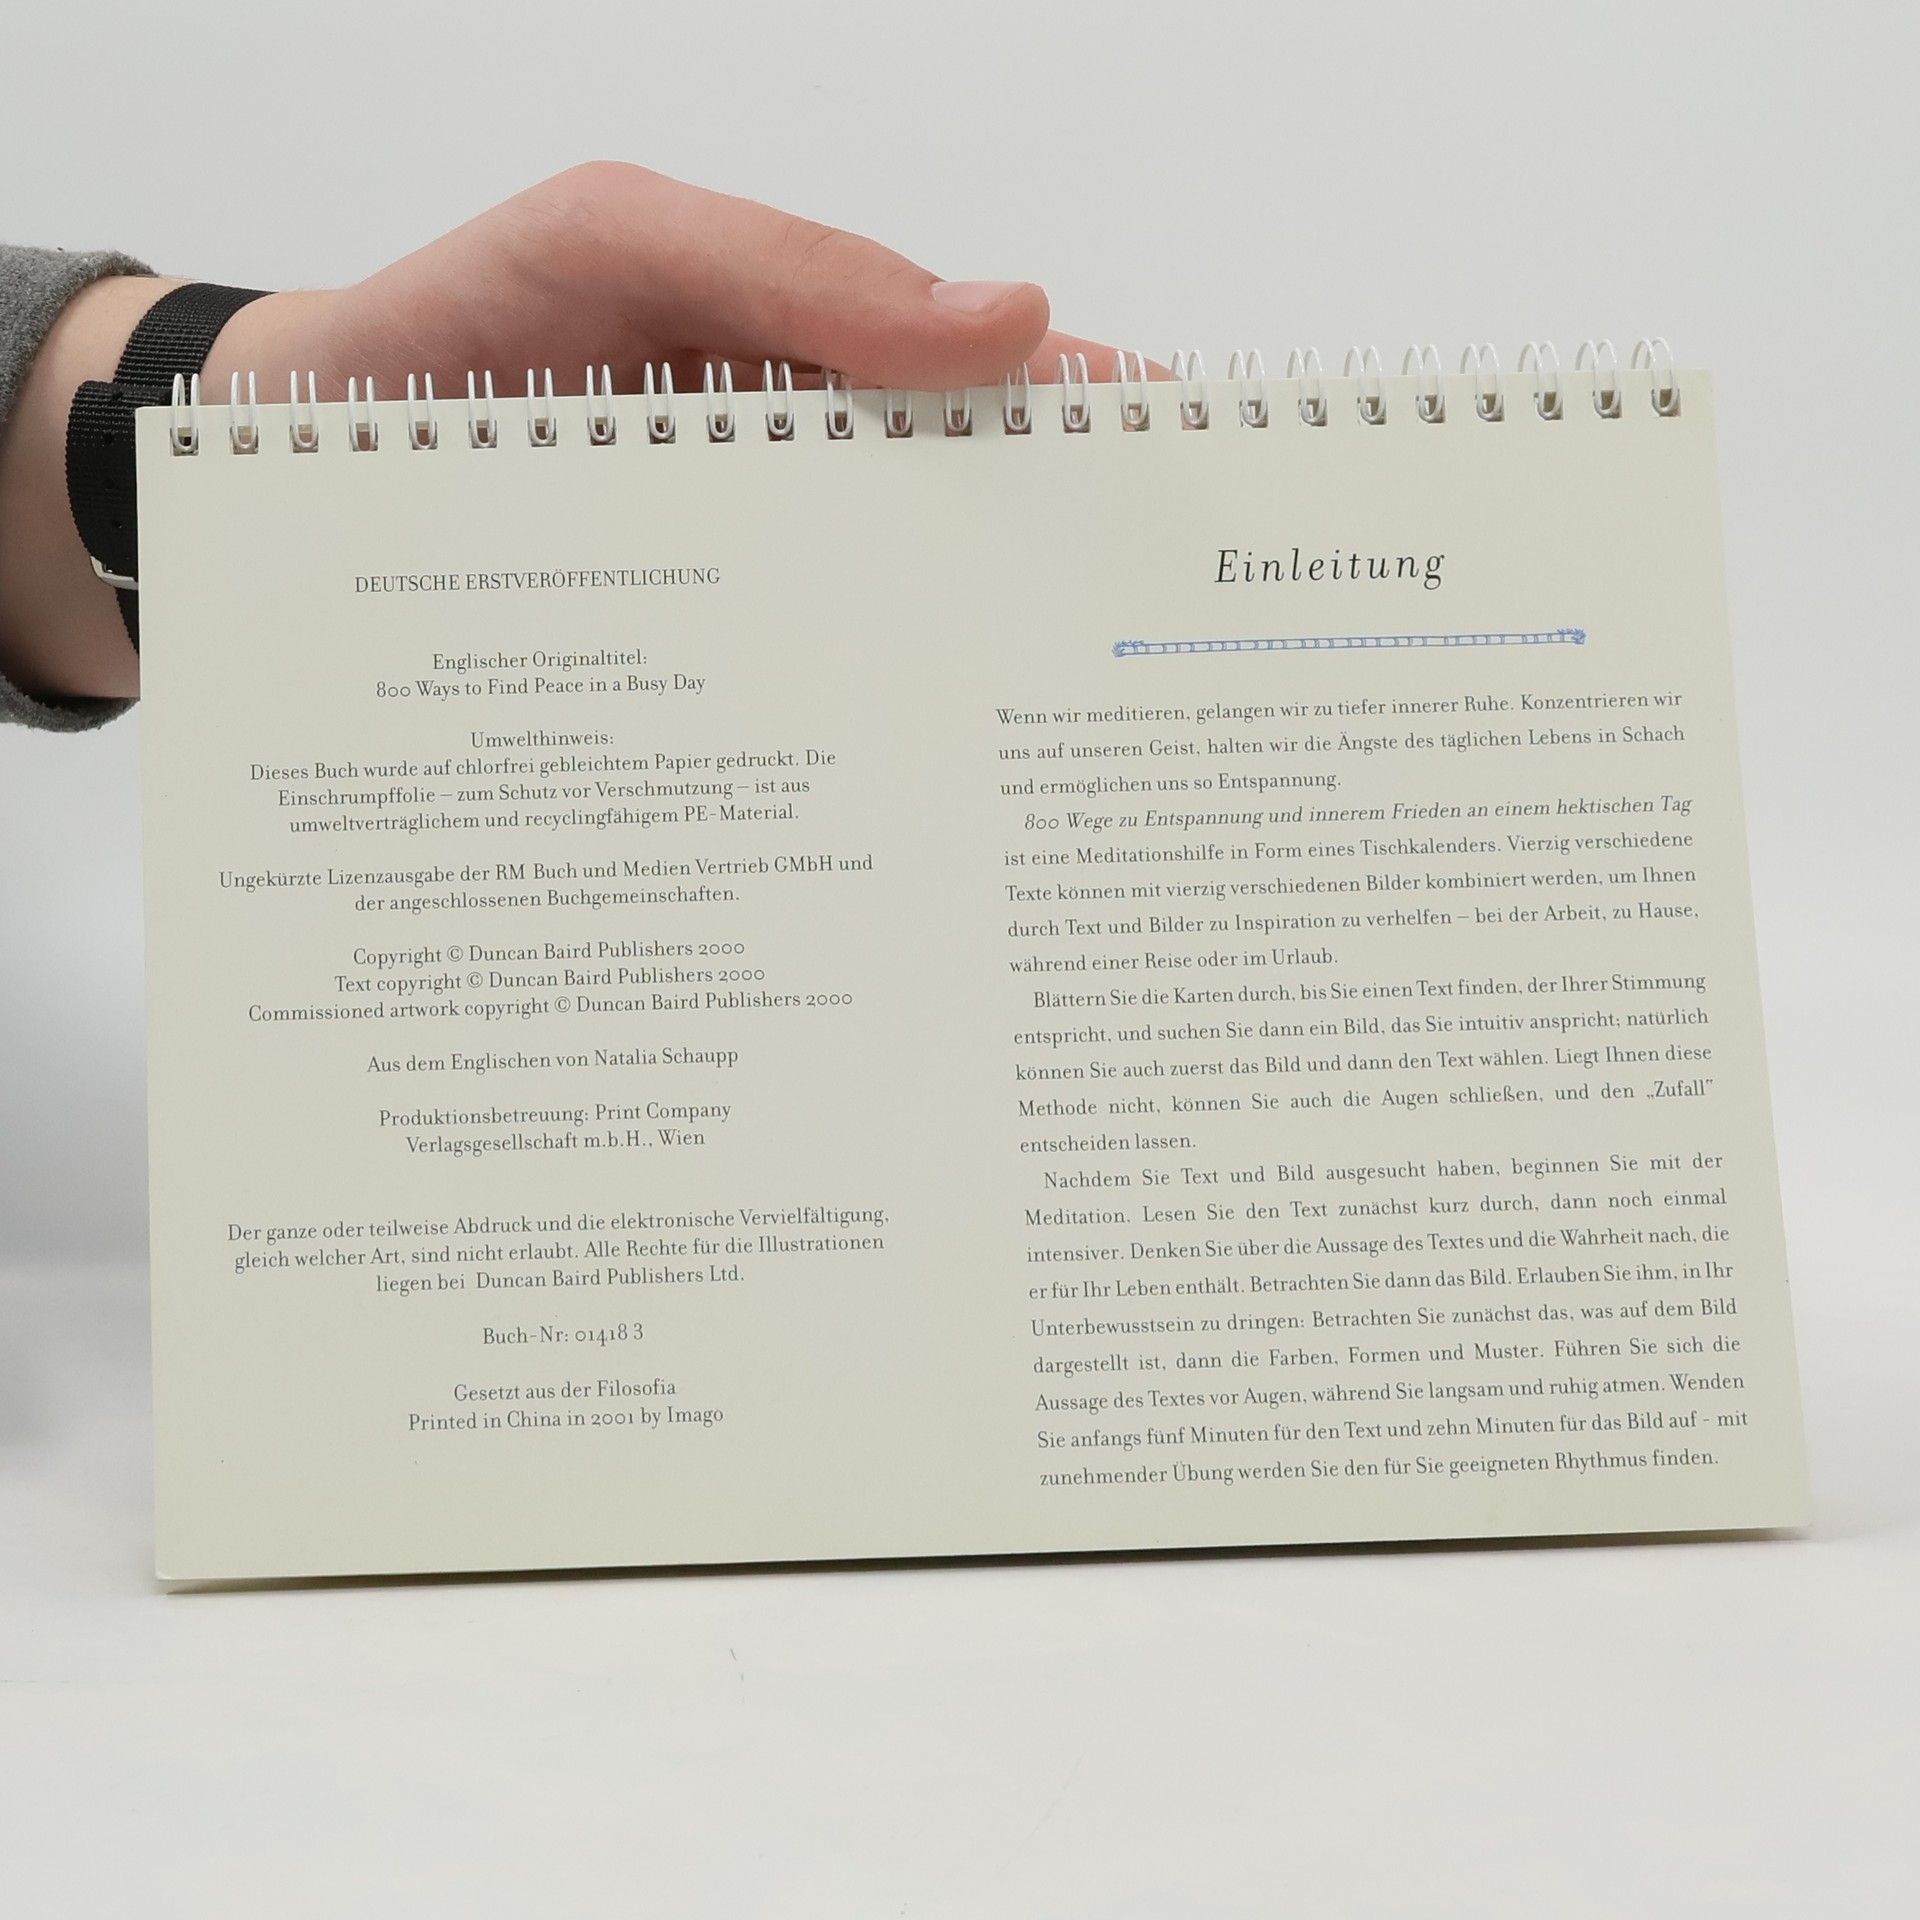 DEUTSCHE ERSTVERÖFFENTLICHUNG
Englischer Originaltitel:
800 Ways to Find Peace in a Busy Day
Umwelthinweis:
Dieses Buch wurde auf chlorfrei gebleichtem Papier gedruckt. Die
Einschrumpffolie – zum Schutz vor Verschmutzung – ist aus
umweltverträglichem und recyclingfähigem PE-Material.
Ungekürzte Lizenzausgabe der RM Buch und Medien Vertrieb GMbH und
der angeschlossenen Buchgemeinschaften.
Copyright © Duncan Baird Publishers 2000
Text copyright © Duncan Baird Publishers 2000
Commissioned artwork copyright © Duncan Baird Publishers 2000
Aus dem Englischen von Natalia Schaupp
Produktionsbetreuung: Print Company
Verlagsgesellschaft m.b.H., Wien
Der ganze oder teilweise Abdruck und die elektronische Vervielfältigung,
gleich welcher Art, sind nicht erlaubt. Alle Rechte für die Illustrationen
liegen bei Duncan Baird Publishers Ltd.
Buch-Nr: 01418 3
Gesetzt aus der Filosofia
Printed in China in 2001 by Imago
Einleitung
Wenn wir meditieren, gelangen wir zu tiefer innerer Ruhe. Konzentrieren wir
uns auf unseren Geist, halten wir die Ängste des täglichen Lebens in Schach
und ermöglichen uns so Entspannung.
800 Wege zu Entspannung und innerem Frieden an einem hektischen Tag
ist eine Meditationshilfe in Form eines Tischkalenders. Vierzig verschiedene
Texte können mit vierzig verschiedenen Bilder kombiniert werden, um Ihnen
durch Text und Bilder zu Inspiration zu verhelfen – bei der Arbeit, zu Hause,
während einer Reise oder im Urlaub.
Blättern Sie die Karten durch, bis Sie einen Text finden, der Ihrer Stimmung
entspricht, und suchen Sie dann ein Bild, das Sie intuitiv anspricht; natürlich
können Sie auch zuerst das Bild und dann den Text wählen. Liegt Ihnen diese
Methode nicht, können Sie auch die Augen schließen, und den „Zufall"
entscheiden lassen.
Nachdem Sie Text und Bild ausgesucht haben, beginnen Sie mit der
Meditation. Lesen Sie den Text zunächst kurz durch, dann noch einmal
intensiver. Denken Sie über die Aussage des Textes und die Wahrheit nach, die
er für Ihr Leben enthält. Betrachten Sie dann das Bild. Erlauben Sie ihm, in Ihr
Unterbewusstsein zu dringen: Betrachten Sie zunächst das, was auf dem Bild
dargestellt ist, dann die Farben, Formen und Muster. Führen Sie sich die
Aussage des Textes vor Augen, während Sie langsam und ruhig atmen. Wenden
Sie anfangs fünf Minuten für den Text und zehn Minuten für das Bild auf - mit
zunehmender Übung werden Sie den für Sie geeigneten Rhythmus finden.